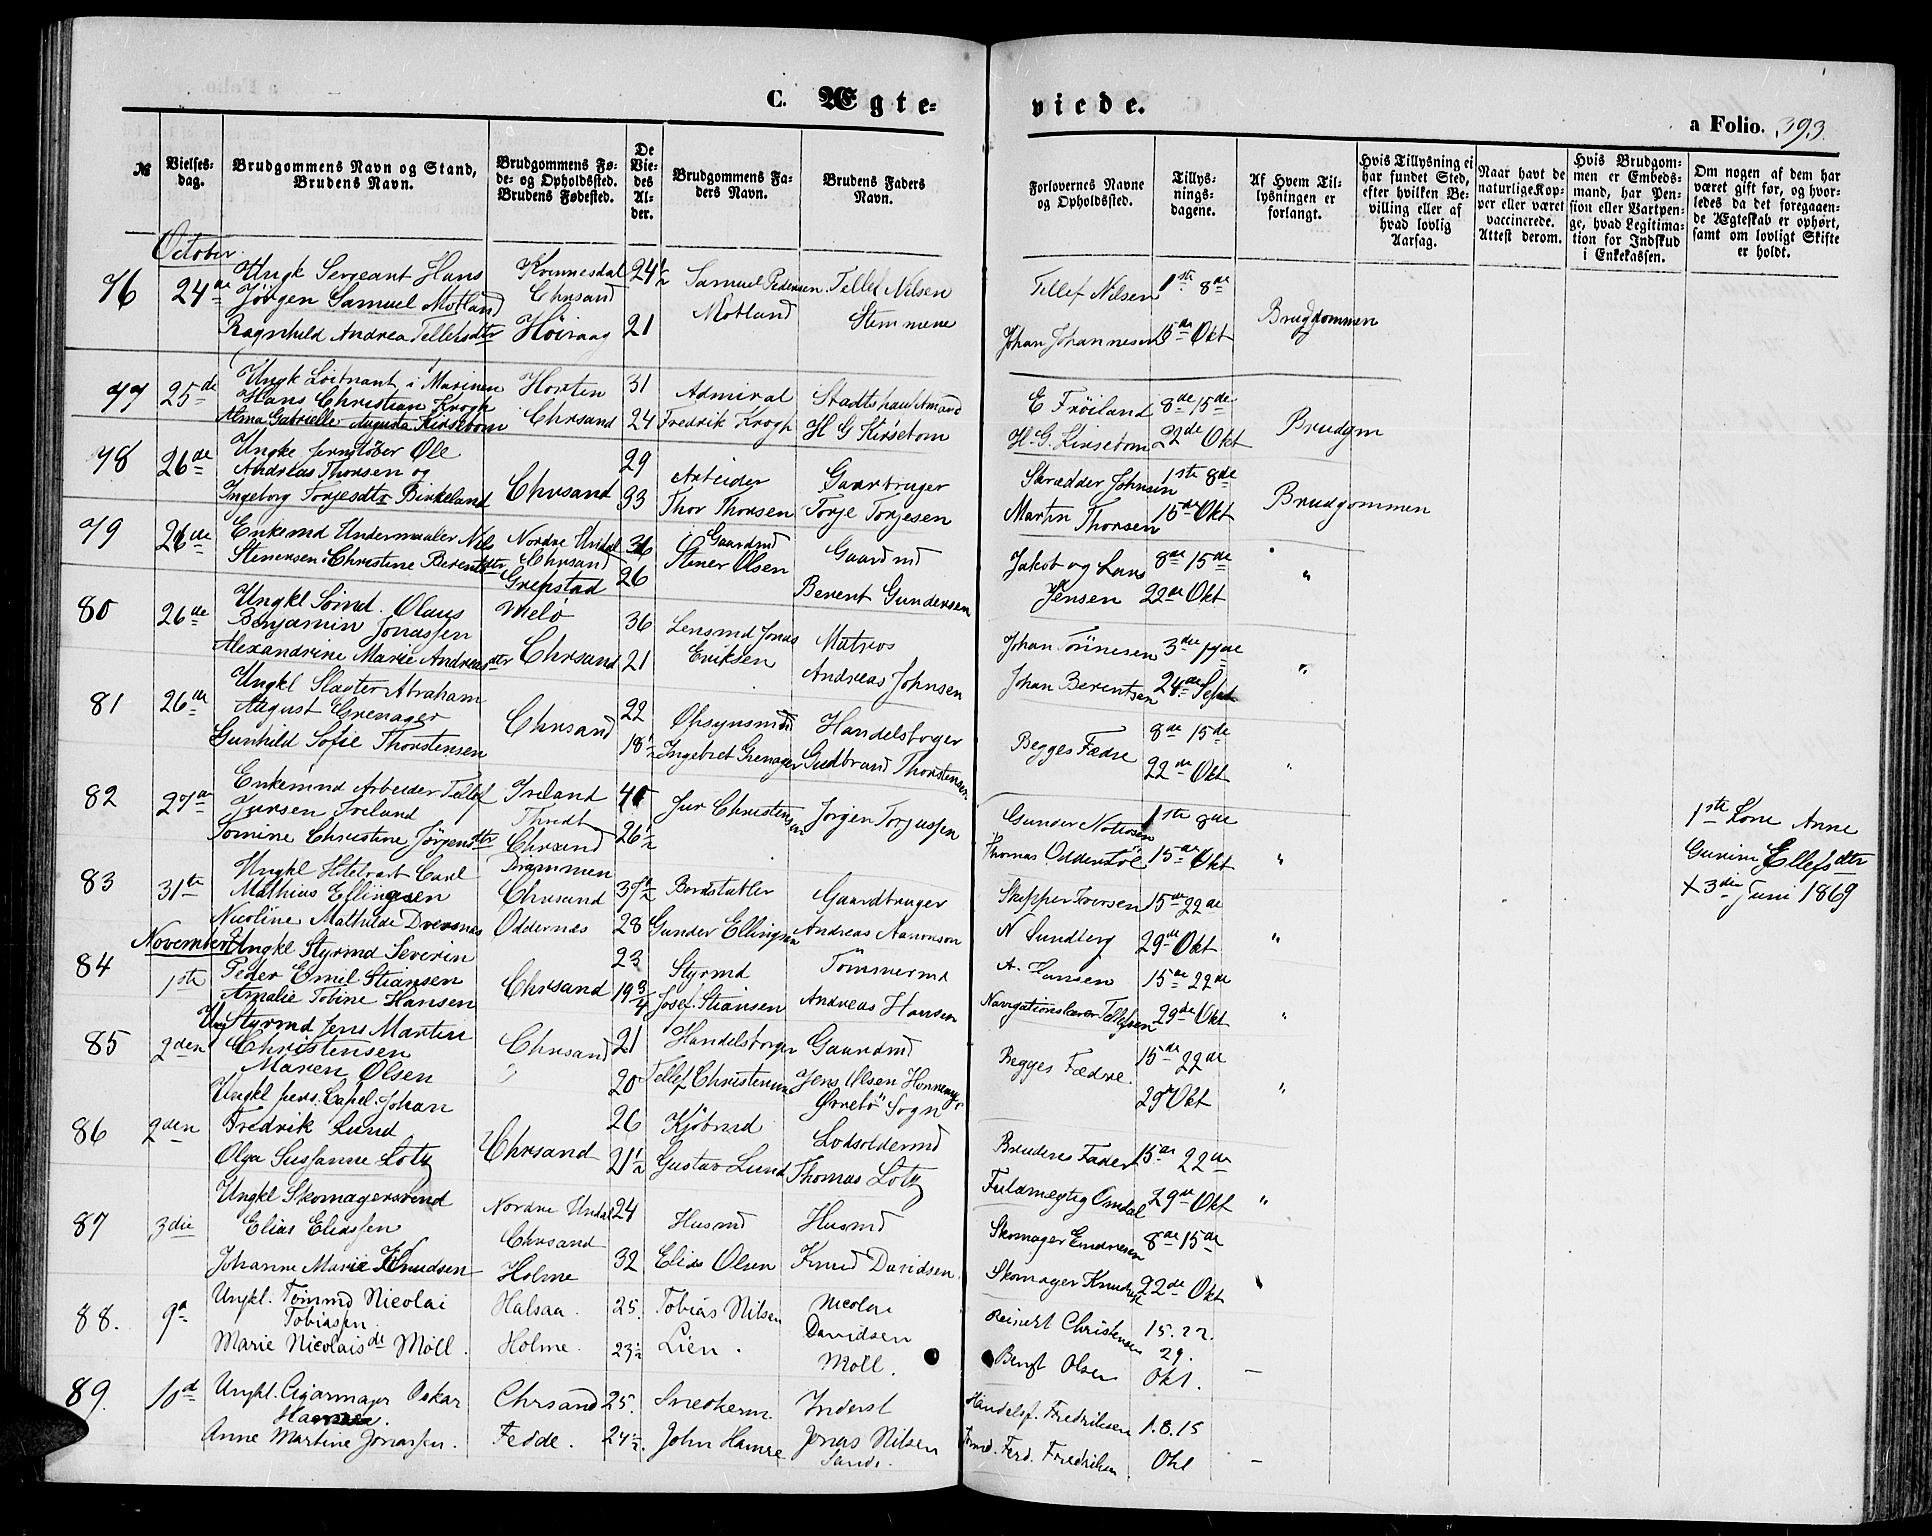 C. Ægte-
viede.
a Folio. 393.
№
Vielses-
dag.
Brudgommens Navn og Stand,
Brudens Navn.
Brudgommens Fø-
de- og Opholdssted.
Brudens Fødested.
De
Vie-
des
Al-
der.
Brudgommens Fa-
ders Navn.
Brudens Faders
Navn.
Forlovernes Navne
og Opholdssted.
Tillys-
nings-
dagene.
Af Hvem Til-
lysningen er
forlangt.
Hvis Tillysning ei
har fundet Sted,
efter hvilken Be-
villing eller af
hvad lovlig
Aarsag.
Naar havt de
naturlige Kop-
per eller været
vaccinerede.
Attest derom.
Hvis Brudgom-
men er Embeds-
mand, har Pen-
sion eller Vartpen-
ge, hvad Legitima-
tion for Indskud
i Enkekassen.
Om nogen af dem har
været gift før, og hvor-
ledes da det foregaaen-
de Ægteskab er ophørt,
samt om lovligt Skifte
er holdt.
October
76 24de Ungk Sergeant Hans Kvinnesdal 24½ Samuel Pedersen Tellef Nilsen Tellef Nilsen 1ste 8de
Jörgen Samuel Motland Chrsand Motland Stemmene Brudgommen
Ragnhild Andrea Tellefsdtr Höiraag 21 Johan Johannesen 15de Okt
77 25de Ungk Loitnant i Marinen Horten 31 Admiral Stadtshauptmand E Fröiland 8de 15de
Hans Christian Krogh Brudgm
Alma Gabrielle Augusta Kirsebom Chrsand 24 Fredrik Krogh H G Kirsebom H. G. Kirsebom 22de Okt
78 26de Ungke Ole 29 Arbeider Gaarbruger Skrædder Johnsen 1ste 8de
Andreas Thorsen og Chrsand Brudgommen
Ingeborg Torjesdtr Birkeland 33 Thor Thorsen Torje Torjesen Martin Thorsen 15de Okt
79 26de Enkemd Undermaaler Nils Nordre Undal 36 Gaardmd Gaardmd Jakob og Lars 8de 15de
Stenersen Christine Berentsdtr Chrsand Stener Olsen "
Grimstad 26 Berent Gundersen Jensen 22de Okt
80 26de Ungkl Sömd. Olaus Melö 36 Lensmd Jonas Matros Johan Tönnesen 3die 17de
Benjamin Jonassen "
Alexandrine Marie Andreasdtr Chrsand 21 Eriksen Andreas Johnsen Johan Berentsen 24de Sept
81 26de Ungkl Slagter Abraham 22 Opsynsmd Handelsborger 8de 15de
August Grenager Chrsand Begges Fædre "
Gunhild Sofie Thorstensen 18½ Ingebret Grenager Gudbrand Thorstensen 22de Okt
82 27de Enkemnd Arbeider Tellef Ireland 41 Jur Christensen Jörgen Torjussen Gunder 1ste 8de 1ste Kone Anne
Jursen Ireland Thredt " Gurine Ellefsdtr
Tomine Christine Jörgensdtr Chrsand 26½ Thomas Odderstöl 15de Okt + 3die Juni 1869
83 31te Ungkl Carl Drammen 37½ Bordstabler Gaardbruger Skipper Iversen 15de 22de
Mathias Ellingsen Chrsand "
Nicoline Mathilde Oddernæs 28 Gunder Ellingsen Andreas Aanonsen N Sundberg 29de Okt
November
84 1ste Ungkl Styrmd Severin 23 Styrmd Tömmermd A. Hansen 15de 22de
Peder Emil Stiansen Chrsand "
Amalie Tobine Hansen 19¾ Josef Stiansen Andreas Hansen Navigationslærer Tellefsen 29de Okt
85 2den Ung Styrmd Jens Martin 21 Handelsborger Gaardmd 15de 22de
Christensen Chrsand Begges Fædre. "
Maren Olsen 20 Tellef Christensen Jens Olsen 29de Okt
Övrebö Sogn
86 2den Ungkl pers. Capel. Johan 26 Kjöbmd Lodsoldermd Brudens Fader 15de 22de
Fredrik Lund Chrsand "
Olga Sussanne Lotz 21½ Gustav Lund Thomas Lotz Fuldmægtig Omdal 29de Okt
87 3die Ungkl Skomagersvend Nordre Undal 24 Husmd Husmd Skomager 8de 15de
Elias Eliassen Chrsand
Johanne Marie Knudsen Holme 32 Elias Olsen Knud Davidsen. Skomager Knudsen 22de Okt
88. 9d Ungkl. Tömmd Nicolai Halsaa. 25. Tobias Nilsen Nicolai Reinert Christensen 15. 22.
Tobiasen Davidsen 29.
Marie Nicolaisdt Möll. Holme. 23½ Lien. Möll. Bengt Olsen Okt. —
89. 10d Ungkl. Cigarmager Oskar Chrsand 25. Snedkerm Inderst Handelsf. Fredriksen 1. 8. 15
Hamre.
Anne Martine Jonassen. Fedde. 24½. John Hamre Jonas Nilsen Ferd. Fredriksen Okt —
Sande.